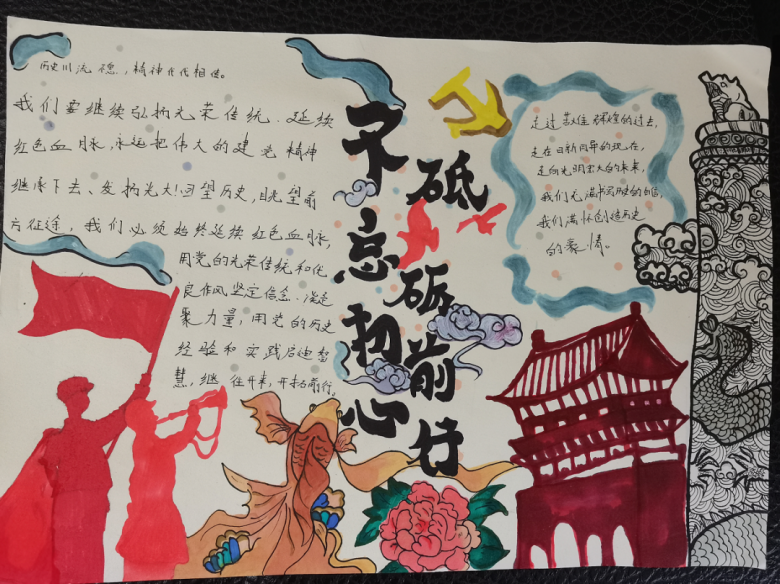 历史川流不息，精神代代相传。
我们要继续弘扬光荣传统、延续
红色血脉，永远把伟大的建党精神
继承下去、发扬光大！回望历史，目光望前
方征途，我们必须始终延续红色血脉，
用党的光荣传统和优
良作风坚定信念、凝
聚力量，用党的历史
经验和实践启迪智
慧，继往开来，开拓前行。
不忘初心
砥砺前行
走过 辉煌的过去，
走在日新月异的现在，
走向光明宏大的未来，
我们充满书写历史的自信，
我们满怀创造历史
的豪情。